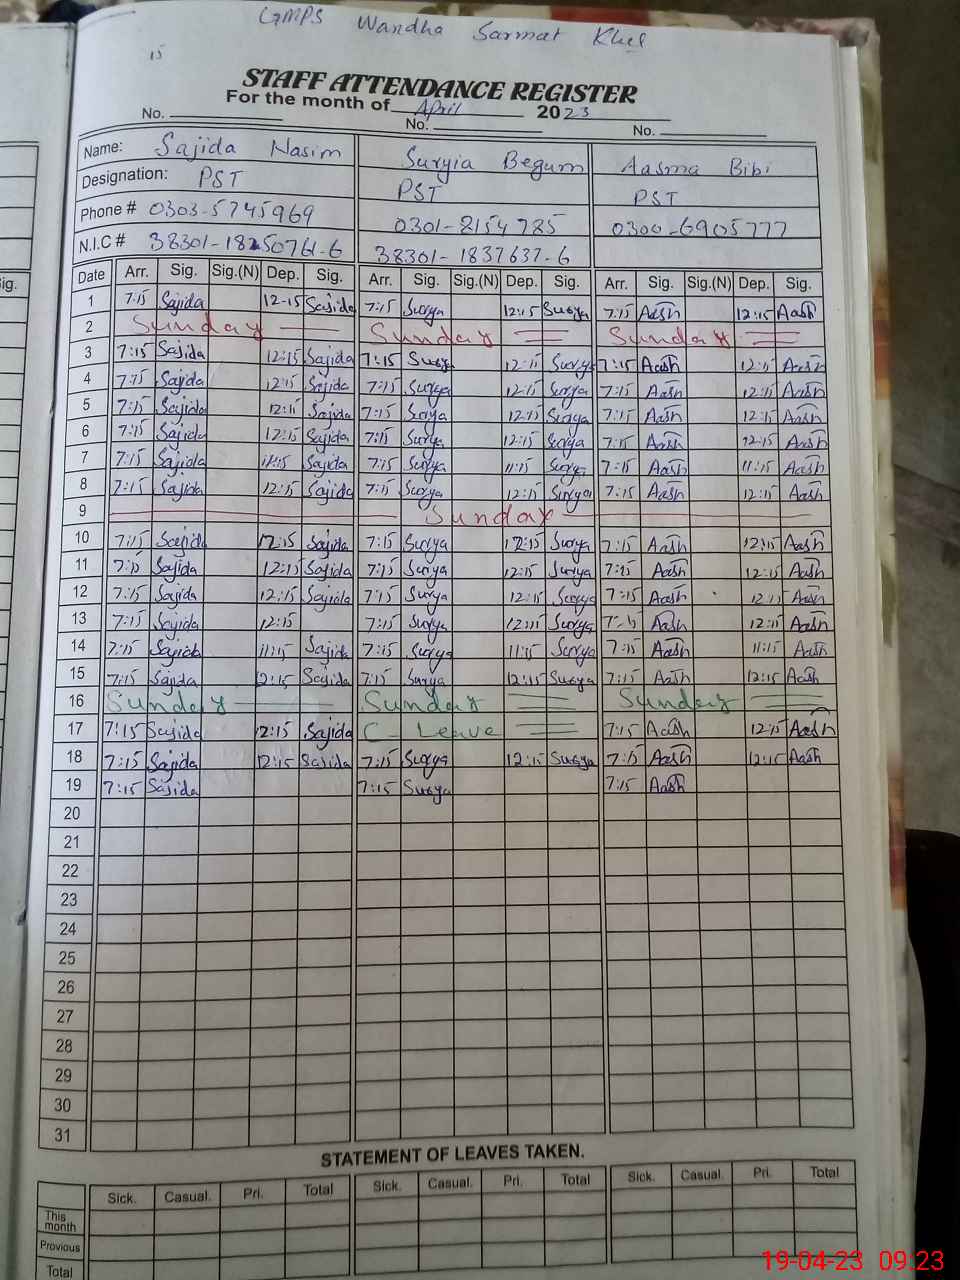 GMPS Wandha Sarmat Khel
15
STAFF ATTENDANCE REGISTER
For the month of April 2023
No. No. No.
Name: Sajida Nasim Suryia Begum Aasma Bibi
Designation: PST PST PST
Phone # 0303-5745969 0301-8154785 0300-6905777
N.I.C # 38301-1837637-6
Date Arr. Sig. Sig.(N) Dep. Sig. Arr. Sig. Sig.(N) Dep. Sig. Arr. Sig. Sig.(N) Dep. Sig.
1 7:15 Sajida 12-15 Sajida 7:15 Surya 12:15 Surya 7:15 Aash 12:15 Aash
2 Sunday Sunday Sunday
3 7:15 Sajida 12:15 Sajida 7:15 Surya 12:15 Surya 7:15 Aash 12:15 Aash
4 7:15 Sajida 12:15 Sajida 7:15 Surya 12:15 Surya 7:15 Aash 12:15 Aash
5 7:15 Sajida 12:15 Sajida 7:15 Surya 12:15 Surya 7:15 Aash 12:15 Aash
6 7:15 Sajida 12:15 Sajida 7:15 Surya 12:15 Surya 7:15 Aash 12:15 Aash
7 7:15 Sajida 11:15 Sajida 7:15 Surya 11:15 Surya 7:15 Aash 11:15 Aash
8 7:15 Sajida 12:15 Sajida 7:15 Surya 12:15 Surya 7:15 Aash 12:15 Aash
9 Sunday
10 7:15 Sajida 12:15 Sajida 7:15 Surya 12:15 Surya 7:15 Aash 12:15 Aash
11 7:15 Sajida 12:15 Sajida 7:15 Surya 12:15 Surya 7:15 Aash 12:15 Aash
12 7:15 Sajida 12:15 Sajida 7:15 Surya 12:15 Surya 7:15 Aash 12:15 Aash
13 7:15 Sajida 12:15 7:15 Surya 12:15 Surya 7:15 Aash 12:15 Aash
14 7:15 Sajida 11:15 Sajida 7:15 Surya 11:15 Surya 7:15 Aash 11:15 Aash
15 7:15 Sajida 12:15 Sajida 7:15 Surya 12:15 Surya 7:15 Aash 12:15 Aash
16 Sunday Sunday Sunday
17 7:15 Sajida 12:15 Sajida C-Leave 7:15 Aash 12:15 Aash
18 7:15 Sajida 12:15 Sajida 7:15 Surya 12:15 Surya 7:15 Aash 12:15 Aash
19 7:15 Sajida 7:15 Surya 7:15 Aash
20
21
22
23
24
25
26
27
28
29
30
31
STATEMENT OF LEAVES TAKEN.
Sick. Casual. Pri. Total Sick. Casual. Pri. Total Sick. Casual. Pri. Total
This month
Provious
Total
19-04-23 09.23